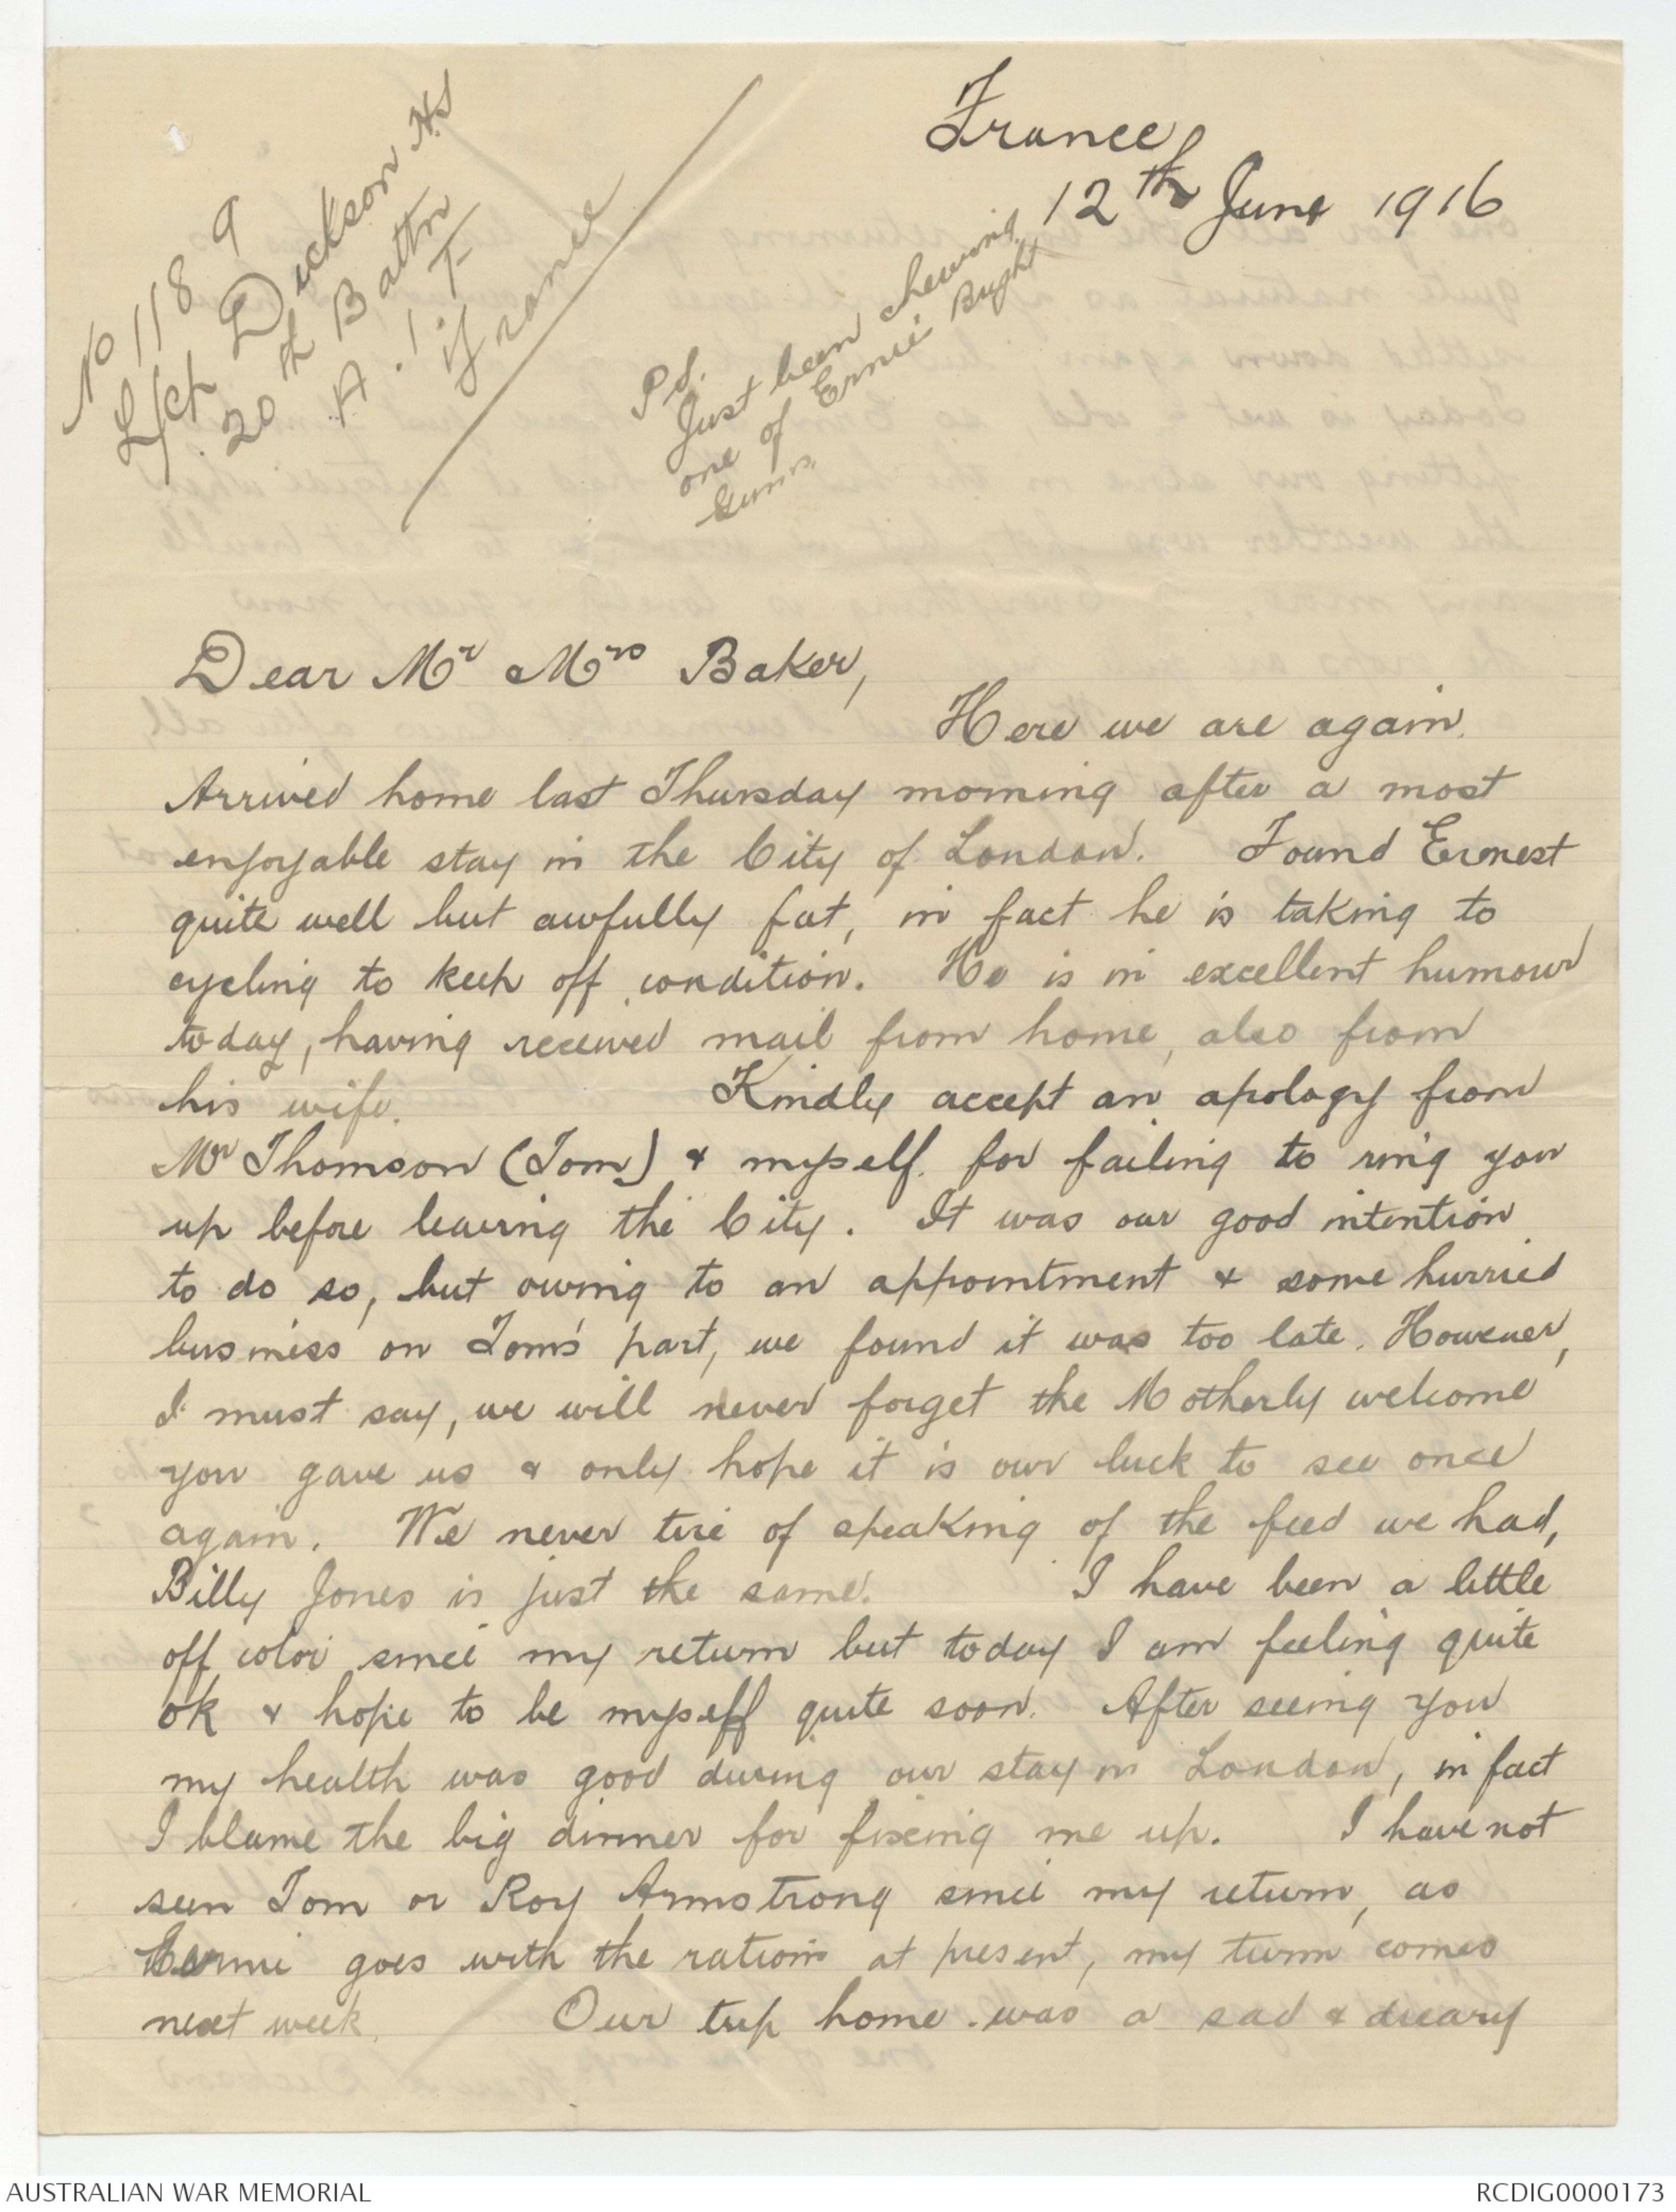 No 1189
L/cpl Dickson H.S
20th Battn
A.I.F
France
P.S.
Just been chewing
one of Ernie Bright
Gums
France
12th June 1916
Dear Mr & Mrs Baker,
Here we are again.
Arrived home last Thursday morning after a most
enjoyable stay in the City of London. Found Ernest
quite well but awfully fat, in fact he is taking to
cycling to keep off condition. He is in excellent humour
today, having received mail from home, also from
his wife. Kindly accept an apology from
Mr Thomson (Tom) & myself for failing to ring you
up before leaving the City. It was our good intention
to do so, but owing to an appointment & some hurried
business on Tom's part, we found it was too late. However,
I must say, we will never forget the Motherly welcome
you gave us & only hope it is our luck to see once
again. We never tire of speaking of the feed we had,
Billy Jones is just the same. I have been a little
off color since my return but today I am feeling quite
ok & hope to be myself quite soon. After seeing you
my health was good during our stay in London, in fact
I blame the big dinner for fixing me up. I have not
seen Tom or Roy Armstrong since my return, as
Ernie goes with the rations at present, my turn comes
next week. Our trip home was a sad & dreary
AUSTRALIAN WAR MEMORIAL
RCDIG0000173